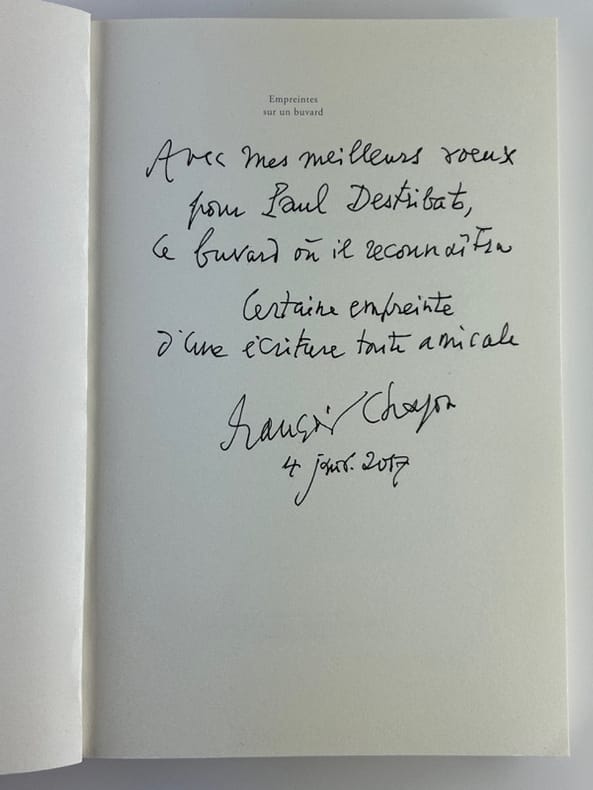 Empreintes
sur un buvard
Avec mes meilleurs voeux
pour Paul Destribats,
ce buvard où il reconnaîtra
Certaine empreinte
d'une écriture toute amicale
François Chapon
4 janv. 2017